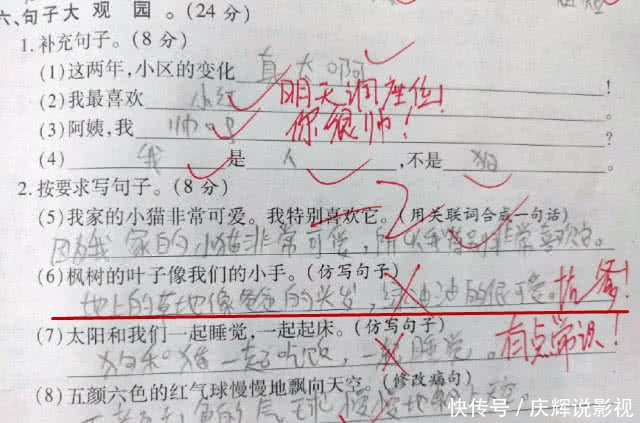 六、句子大 观 园 。(24 分)
1.补充句子。(8 分)
(1)这两年,小区的变化 真 大 啊 !
(2)我最喜欢 小红 。
明天调座位!
(3)阿姨,我 帅 吗 ?
你很帅!
(4) 我 是 人 ,不是 狗 。
2.按要求写句子。(8 分)
-2
(5)我家的小猫非常可爱。我特别喜欢它。(用关联词合成一句话)
因为我家的小猫非常可爱,所以我特别非常喜欢它。
(6)枫树的叶子像我们的小手。(仿写句子)
地上的草地像爸爸的头发,绿油油的很可爱。
坑爹!
(7)太阳和我们一起睡觉,一起起床。(仿写句子)
狗和猫一起吃饭,一起睡觉。
有点常识!
(8)五颜六色的红气球慢慢地飘向天空。(修改病句)
五颜六色的气球慢慢地
快传号 / 庆辉说影视